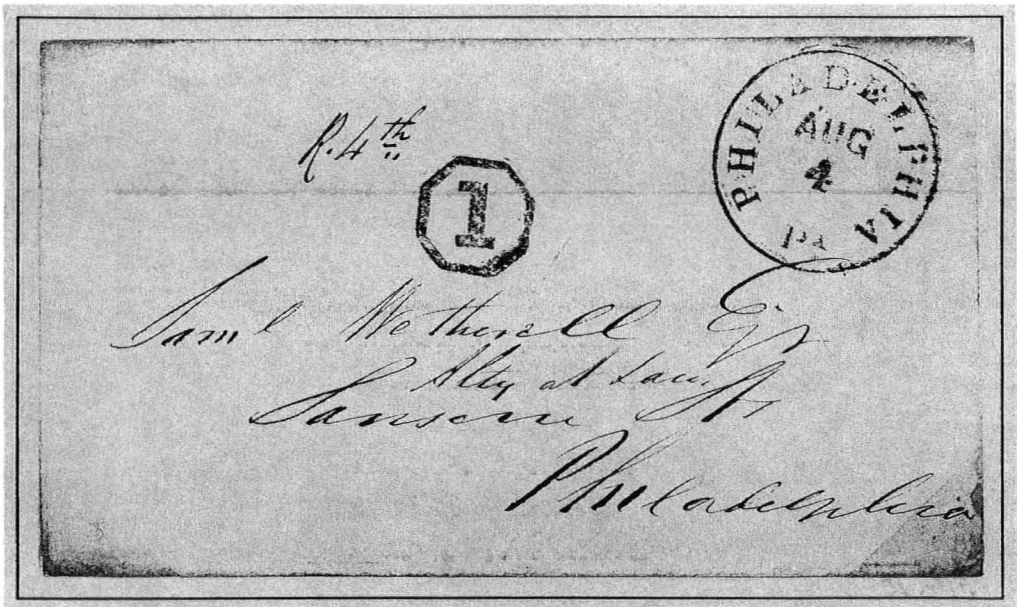 R. 4th
1
PHILADELPHIA Pa
AUG
4
Saml Wetherell Esqr
Atty at Law
Sansom St
Philadelphia